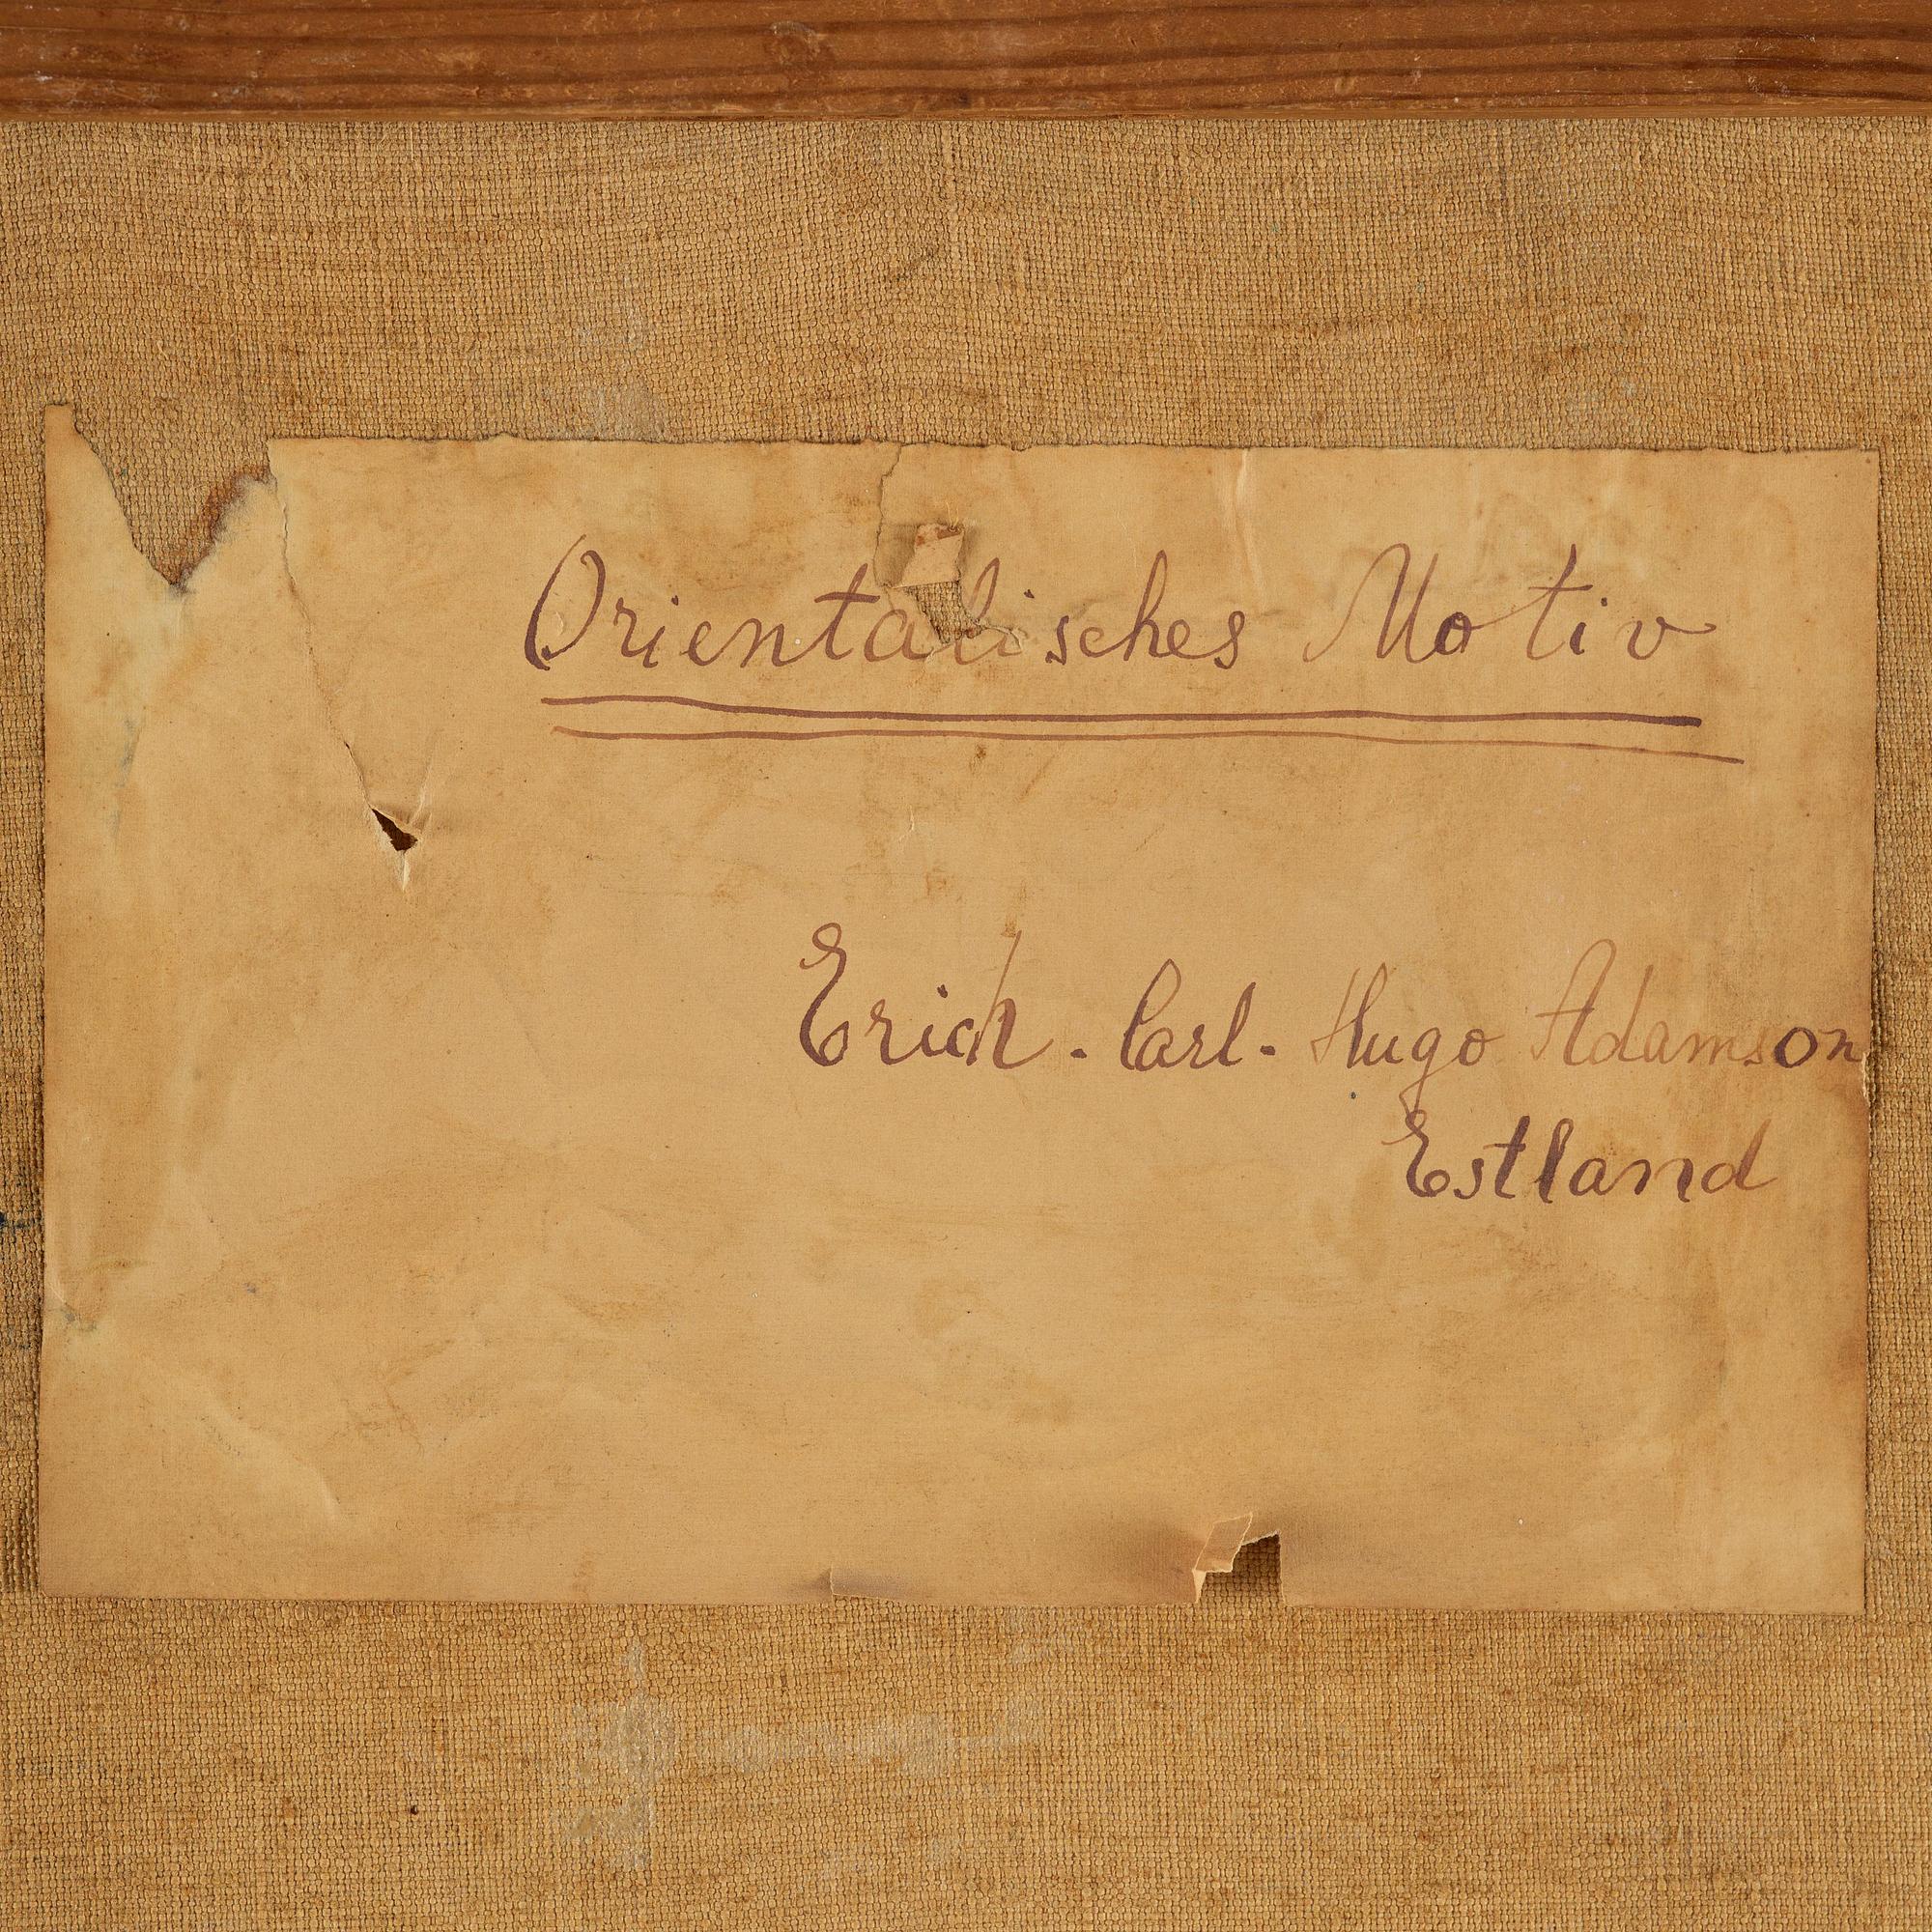 Orientalisches Motiv
Erich - Carl - Hugo Adamson
Estland